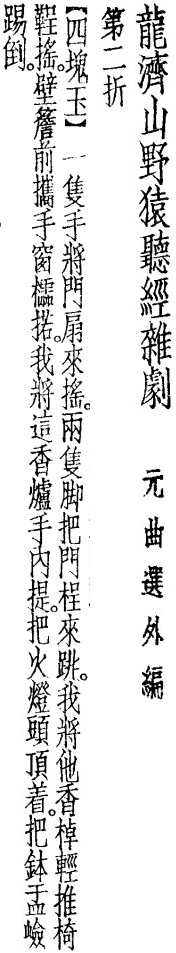 龍濟山野猿聽經雜劇 元曲選外編
第二折
【四塊玉】一隻手將門扇來搖。兩隻脚把門桯來跳。我將他香棹輕推椅
鞋搖。壁簷前攜手窗櫺掿。我將這香爐手內提。把火燈頭頂着。把鉢盂嶮
踢倒。